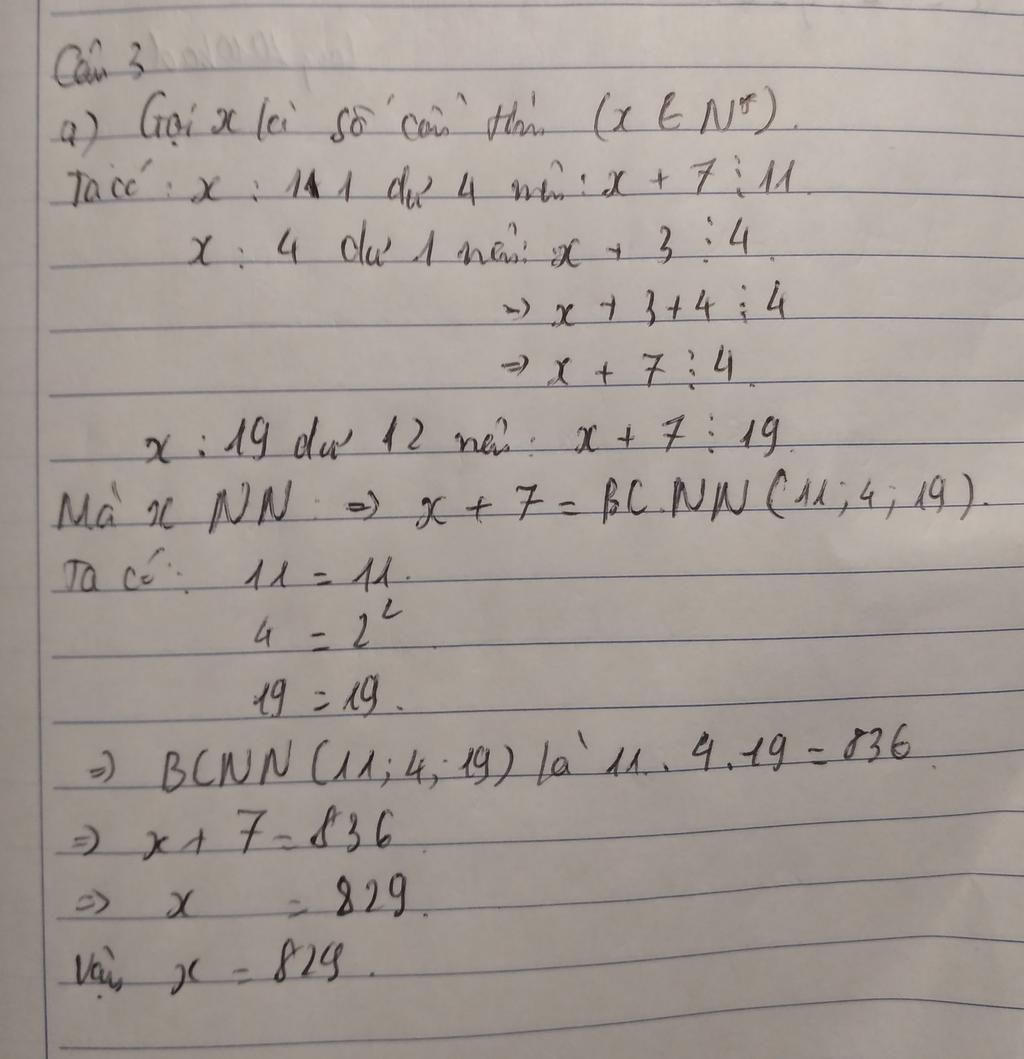 Câu 3
a) Gọi x là số cần tìm (x ∈ N*).
Ta có : x : 11 dư 4 nên : x + 7 ⋮ 11.
x : 4 dư 1 nên : x + 3 ⋮ 4.
=> x + 3 + 4 ⋮ 4
=> x + 7 ⋮ 4.
x : 19 dư 12 nên : x + 7 ⋮ 19.
Mà x NN => x + 7 = BC.NN (11; 4; 19).
Ta có : 11 = 11.
4 = 2²
19 = 19.
=> BCNN (11; 4; 19) là 11. 4. 19 = 836.
=> x + 7 = 836.
=> x = 829.
Vậy x = 829.